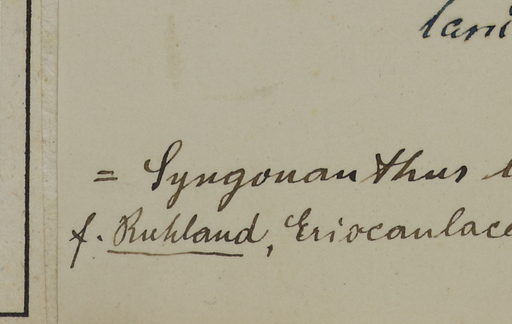 lani
= Syngonanthus
f. Ruhland, Eriocaulace